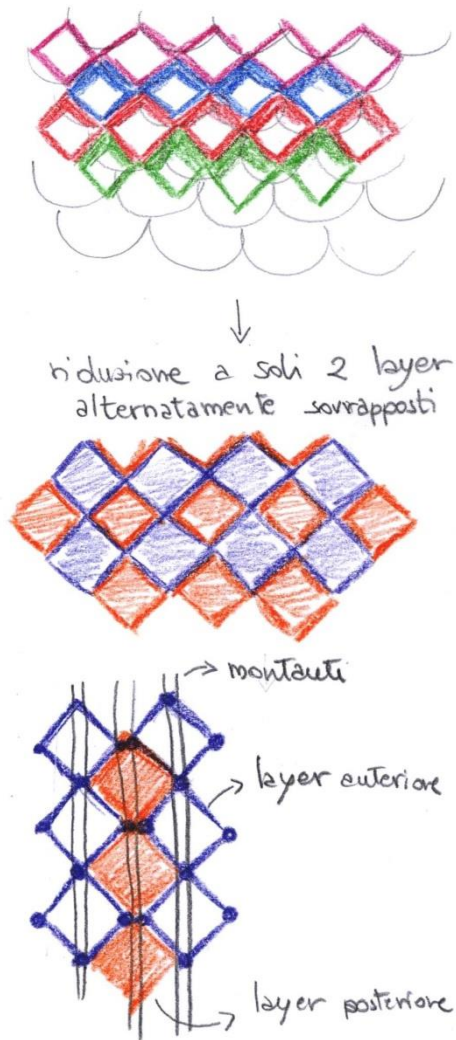 riduzione a soli 2 layer
alternatamente sovrapposti
montanti
layer anteriore
layer posteriore